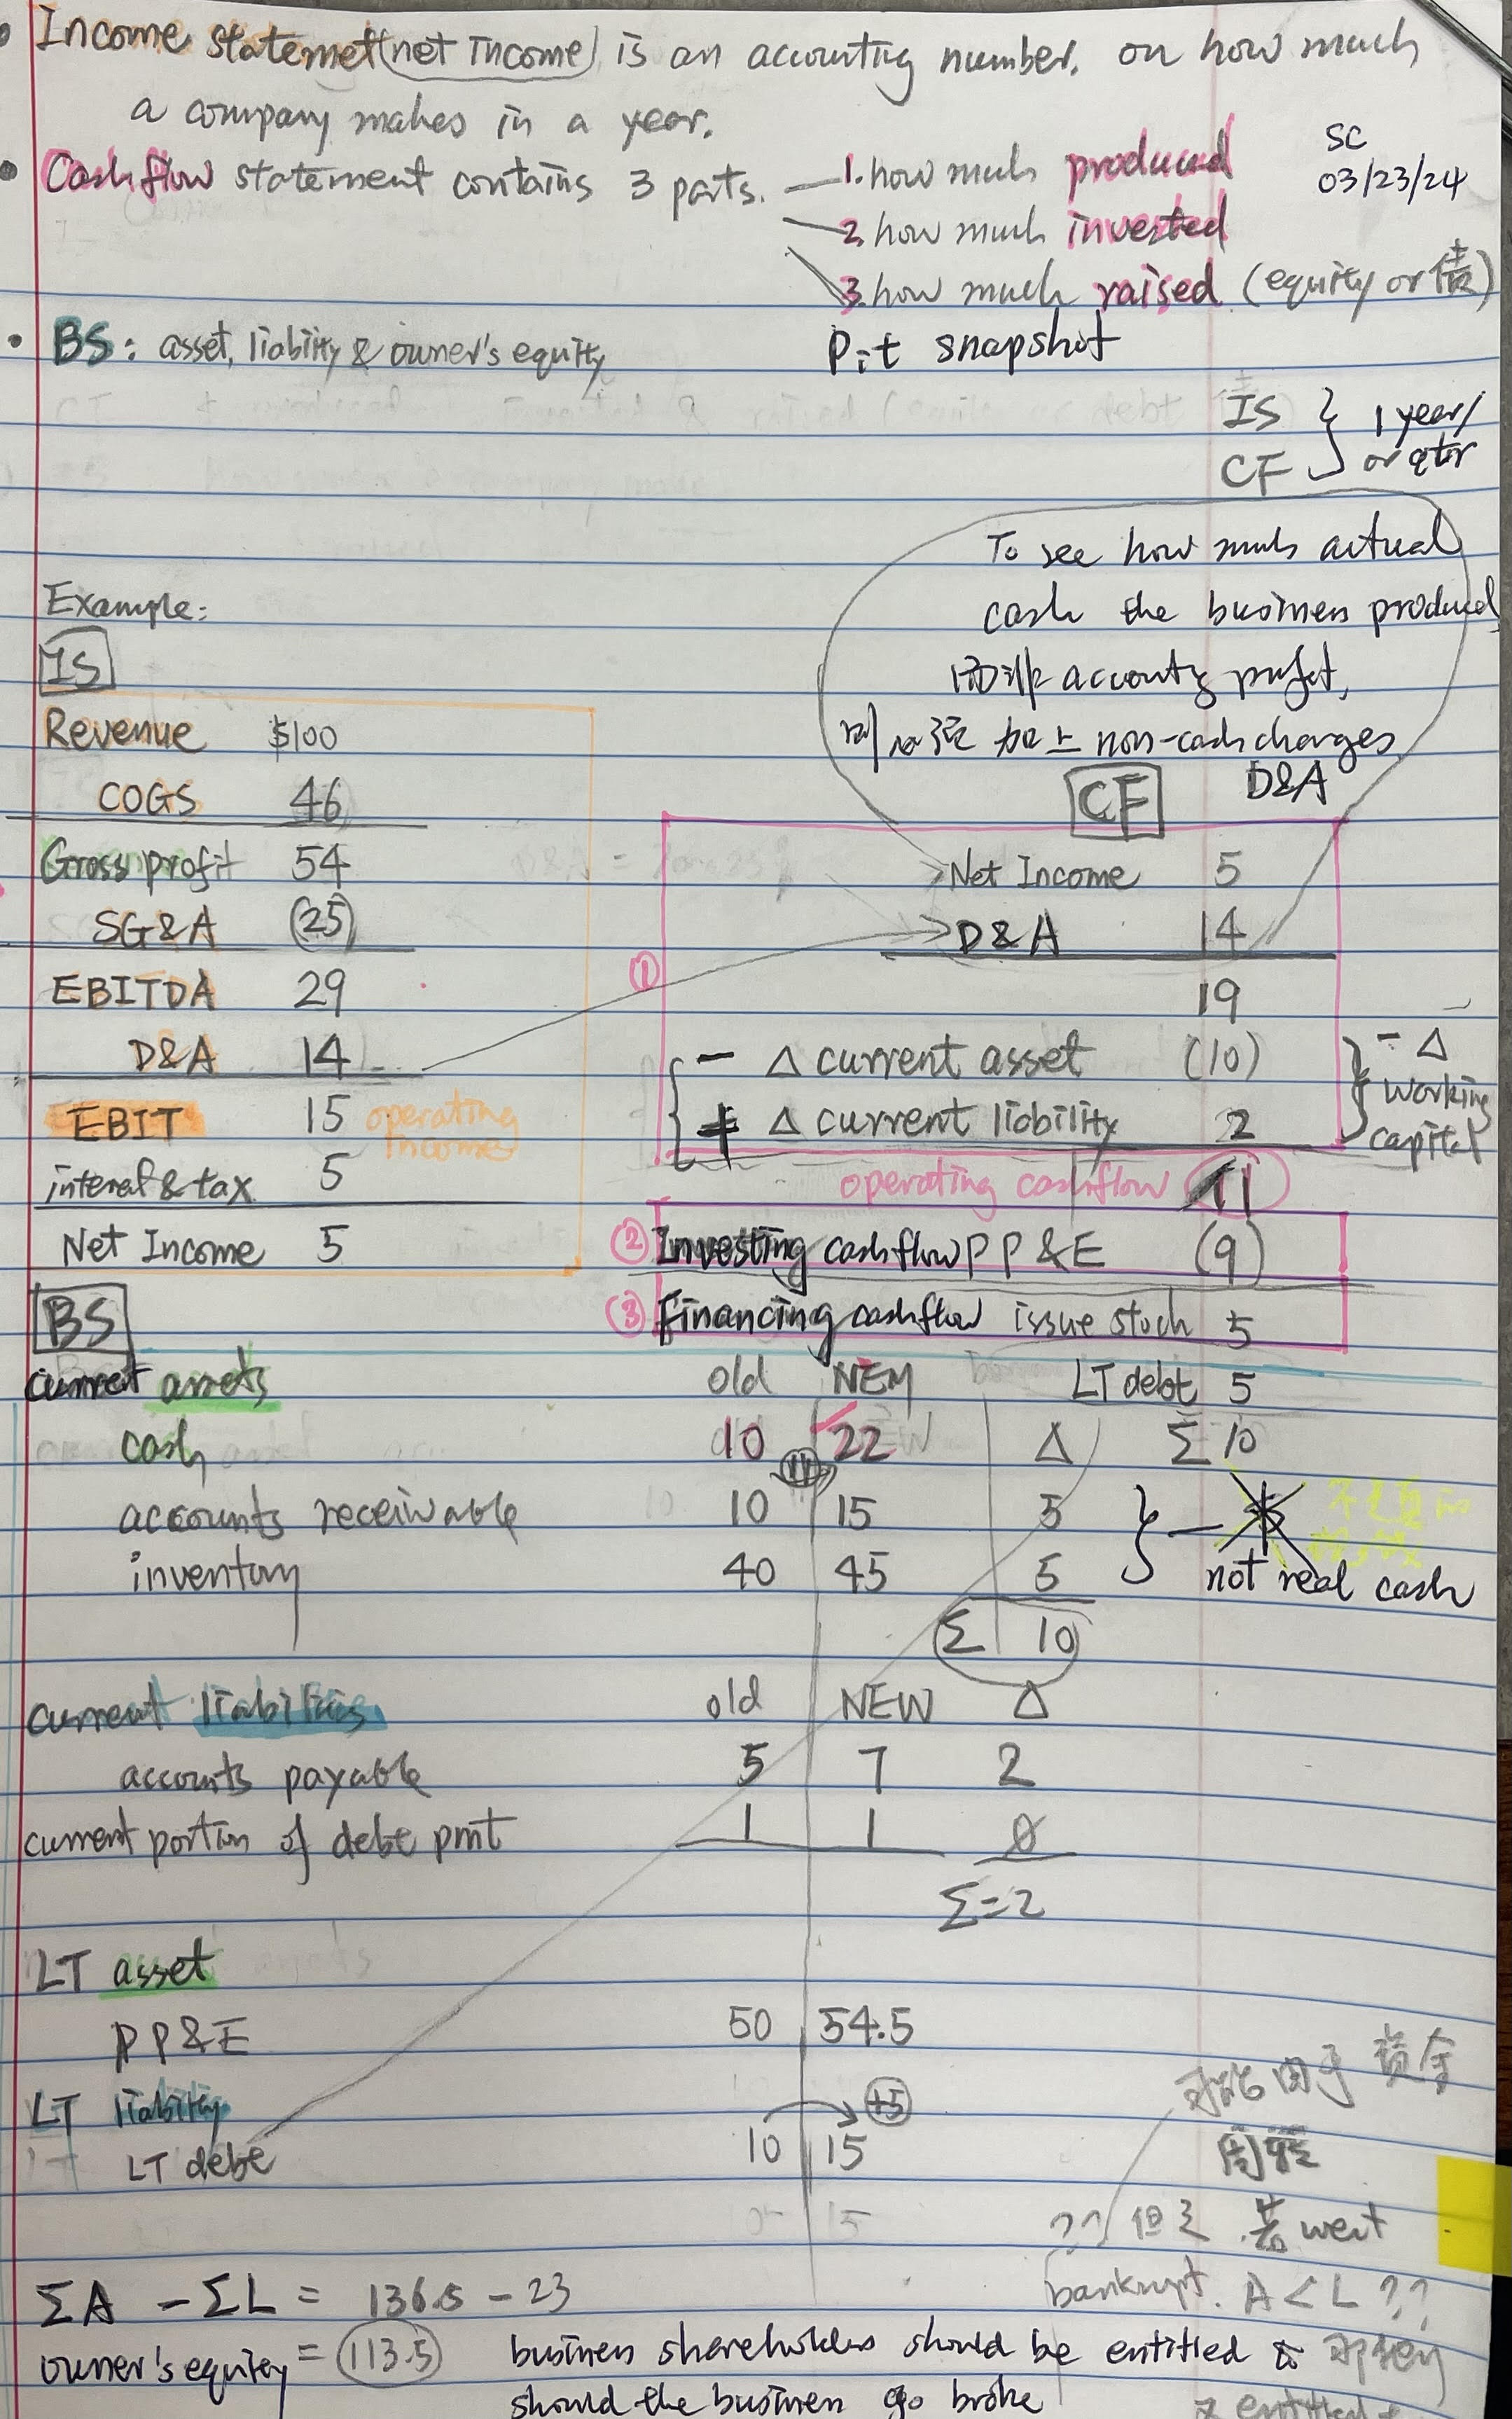 Income statemet (net income) is an accounting number. on how much
a company makes in a year.
SC
03/23/24
Cashflow statement contains 3 parts. 1. how much produced
2. how much invested
3. how much raised (equity or 债)
BS: asset, liability & owner's equity
P.i.t snapshot
IS
CF
1 year/
or qtr
To see how much actual
cash the business produced,
而非 accounting profit,
则 加上 non-cash charges
D&A
Example:
IS
Revenue $100
COGS 46
Gross profit 54
SG&A (25)
EBITDA 29
D&A 14
EBIT 15 operating
income
interest & tax 5
Net Income 5
CF
Net Income 5
D&A 14
19
① - Δ current asset (10)
+ Δ current liability 2
- Δ
working
capital
operating cashflow 11
② Investing cashflow PP&E (9)
③ Financing cashflow issue stock 5
LT debt 5
Σ 10
BS
current assets old NEW Δ
cash 10 22
(11)
accounts receivable 10 15 5
inventory 40 45 5
not real cash
Σ 10
current liabilities old NEW Δ
accounts payable 5 7 2
current portion of debt pmt 1 1 0
Σ=2
LT asset
PP&E 50 54.5
LT liability +5
LT debt 10 15
可能 由于 资金
周转
?? 但是 若 went
bankrupt. A < L ??
ΣA - ΣL = 136.5 - 23
owner's equity = 113.5 business shareholders should be entitled to
should the business go broke